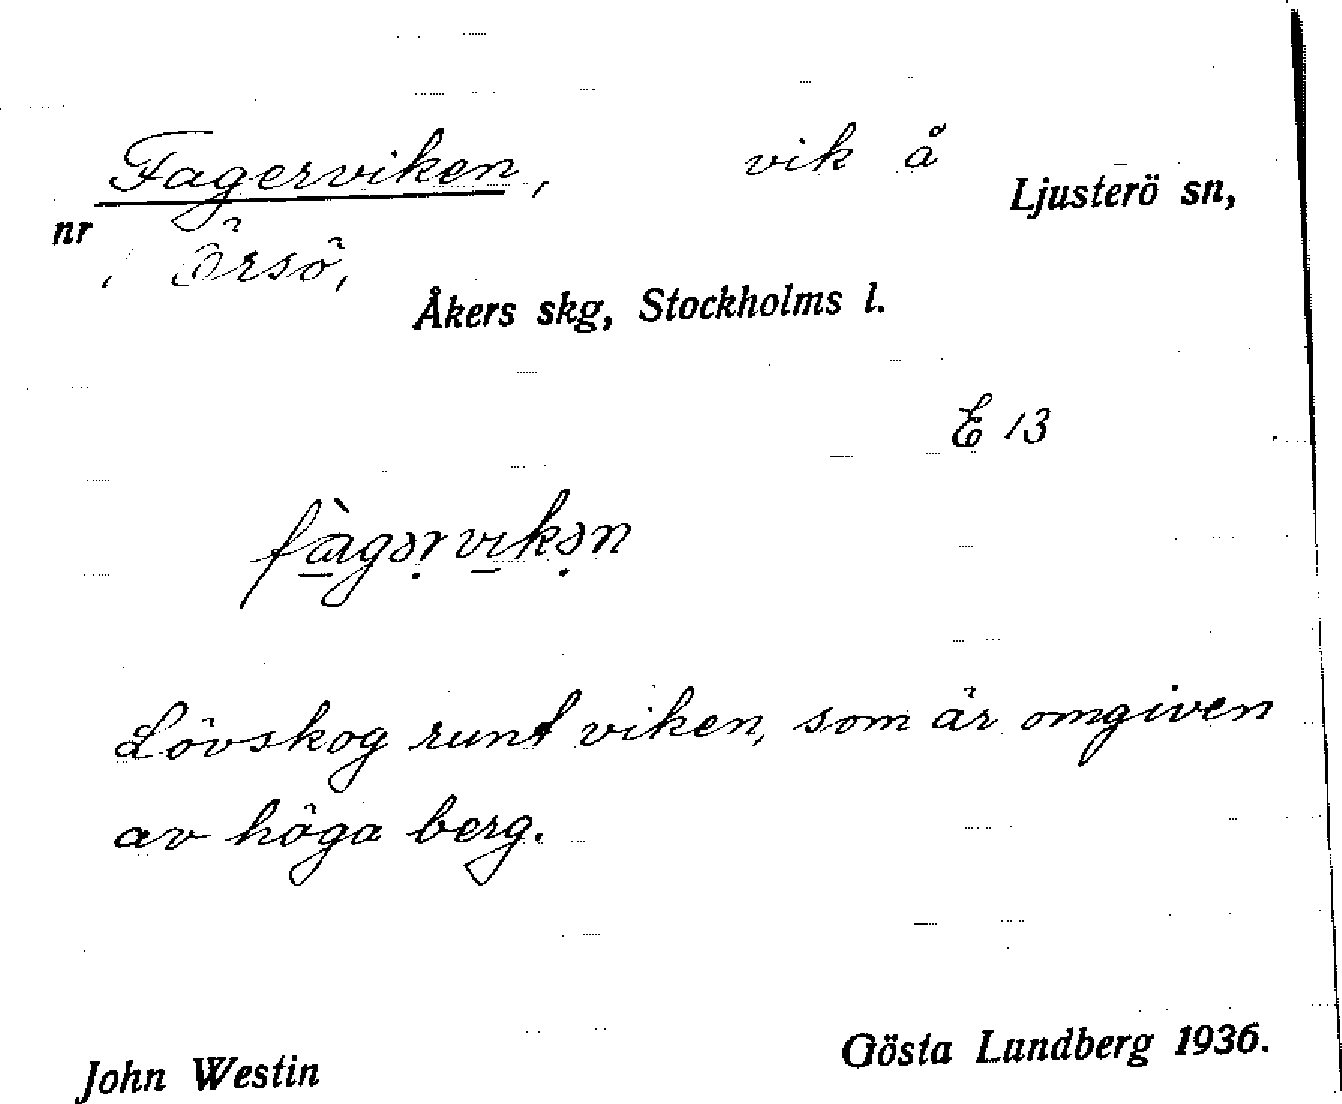 Fagerviken, vik å
Ljusterö sn,
nr
, Örsö,
Åkers skg, Stockholms l.
E 13
fàgər vikən
Lövskog runt viken, som är omgiven
av höga berg.
John Westin Gösta Lundberg 1936.